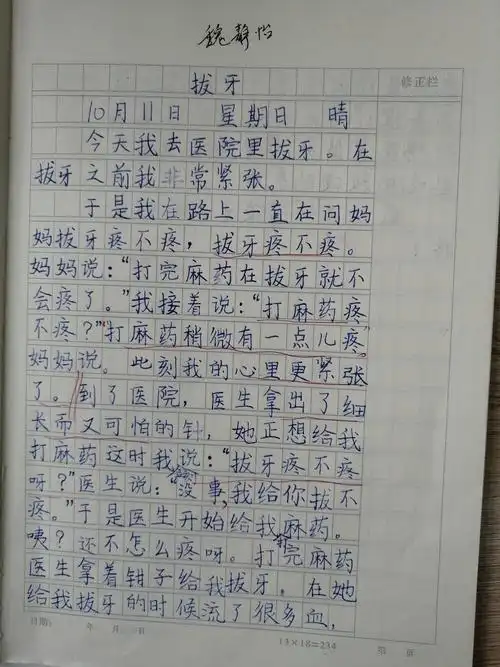 魏静怡
拔牙
修正栏
10月11日 星期日 晴
今天我去医院里拔牙。在
拔牙之前我非常紧张。
于是我在路上一直在问妈
妈拔牙疼不疼，拔牙疼不疼。
妈妈说：“打完麻药在拔牙就不
会疼了。”我接着说：“打麻药疼
不疼？”“打麻药稍微有一点儿疼”
妈妈说。此刻我的心里更紧张
了。到了医院，医生拿出了细
长而又可怕的针，她正想给我
打麻药这时我说：“拔牙疼不疼
呀？”医生说：“没事，我给你拔不
疼。”于是医生开始给我打麻药。
咦？还不怎么疼呀。打完麻药
医生拿着钳子给我拔牙，在她
给我拔牙的时候流了很多血，
日期： 年 月 日 13×18=234 第 页